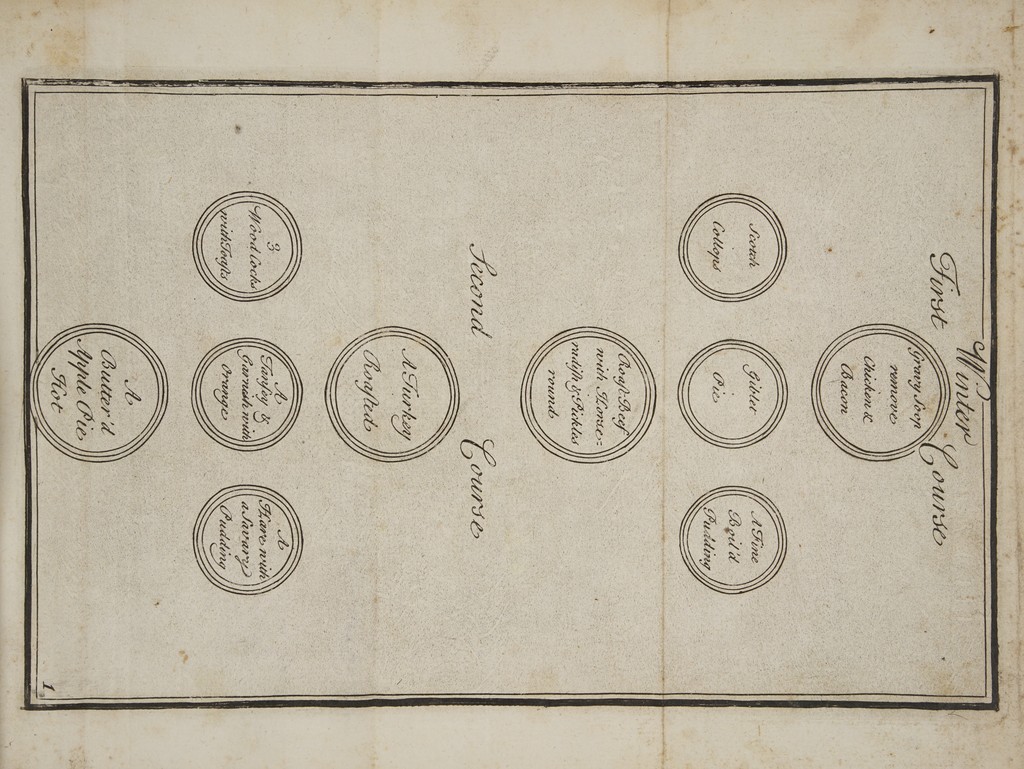 Winter
First Course
Gravy Soup
remove
Chicken &
Bacon
Scotch
Collops
Giblet
Pie
A Fine
Boil'd
Pudding
Roast Beef
with Horse=
radish & Pickles
round
Second Course
A Turkey
Roasted
3
Wood Cocks
with Toasts
A
Tansey &
Garnish with
Orange
A
Hare with
a Savary
Pudding
A
Butter'd
Apple Pie
Hot
1